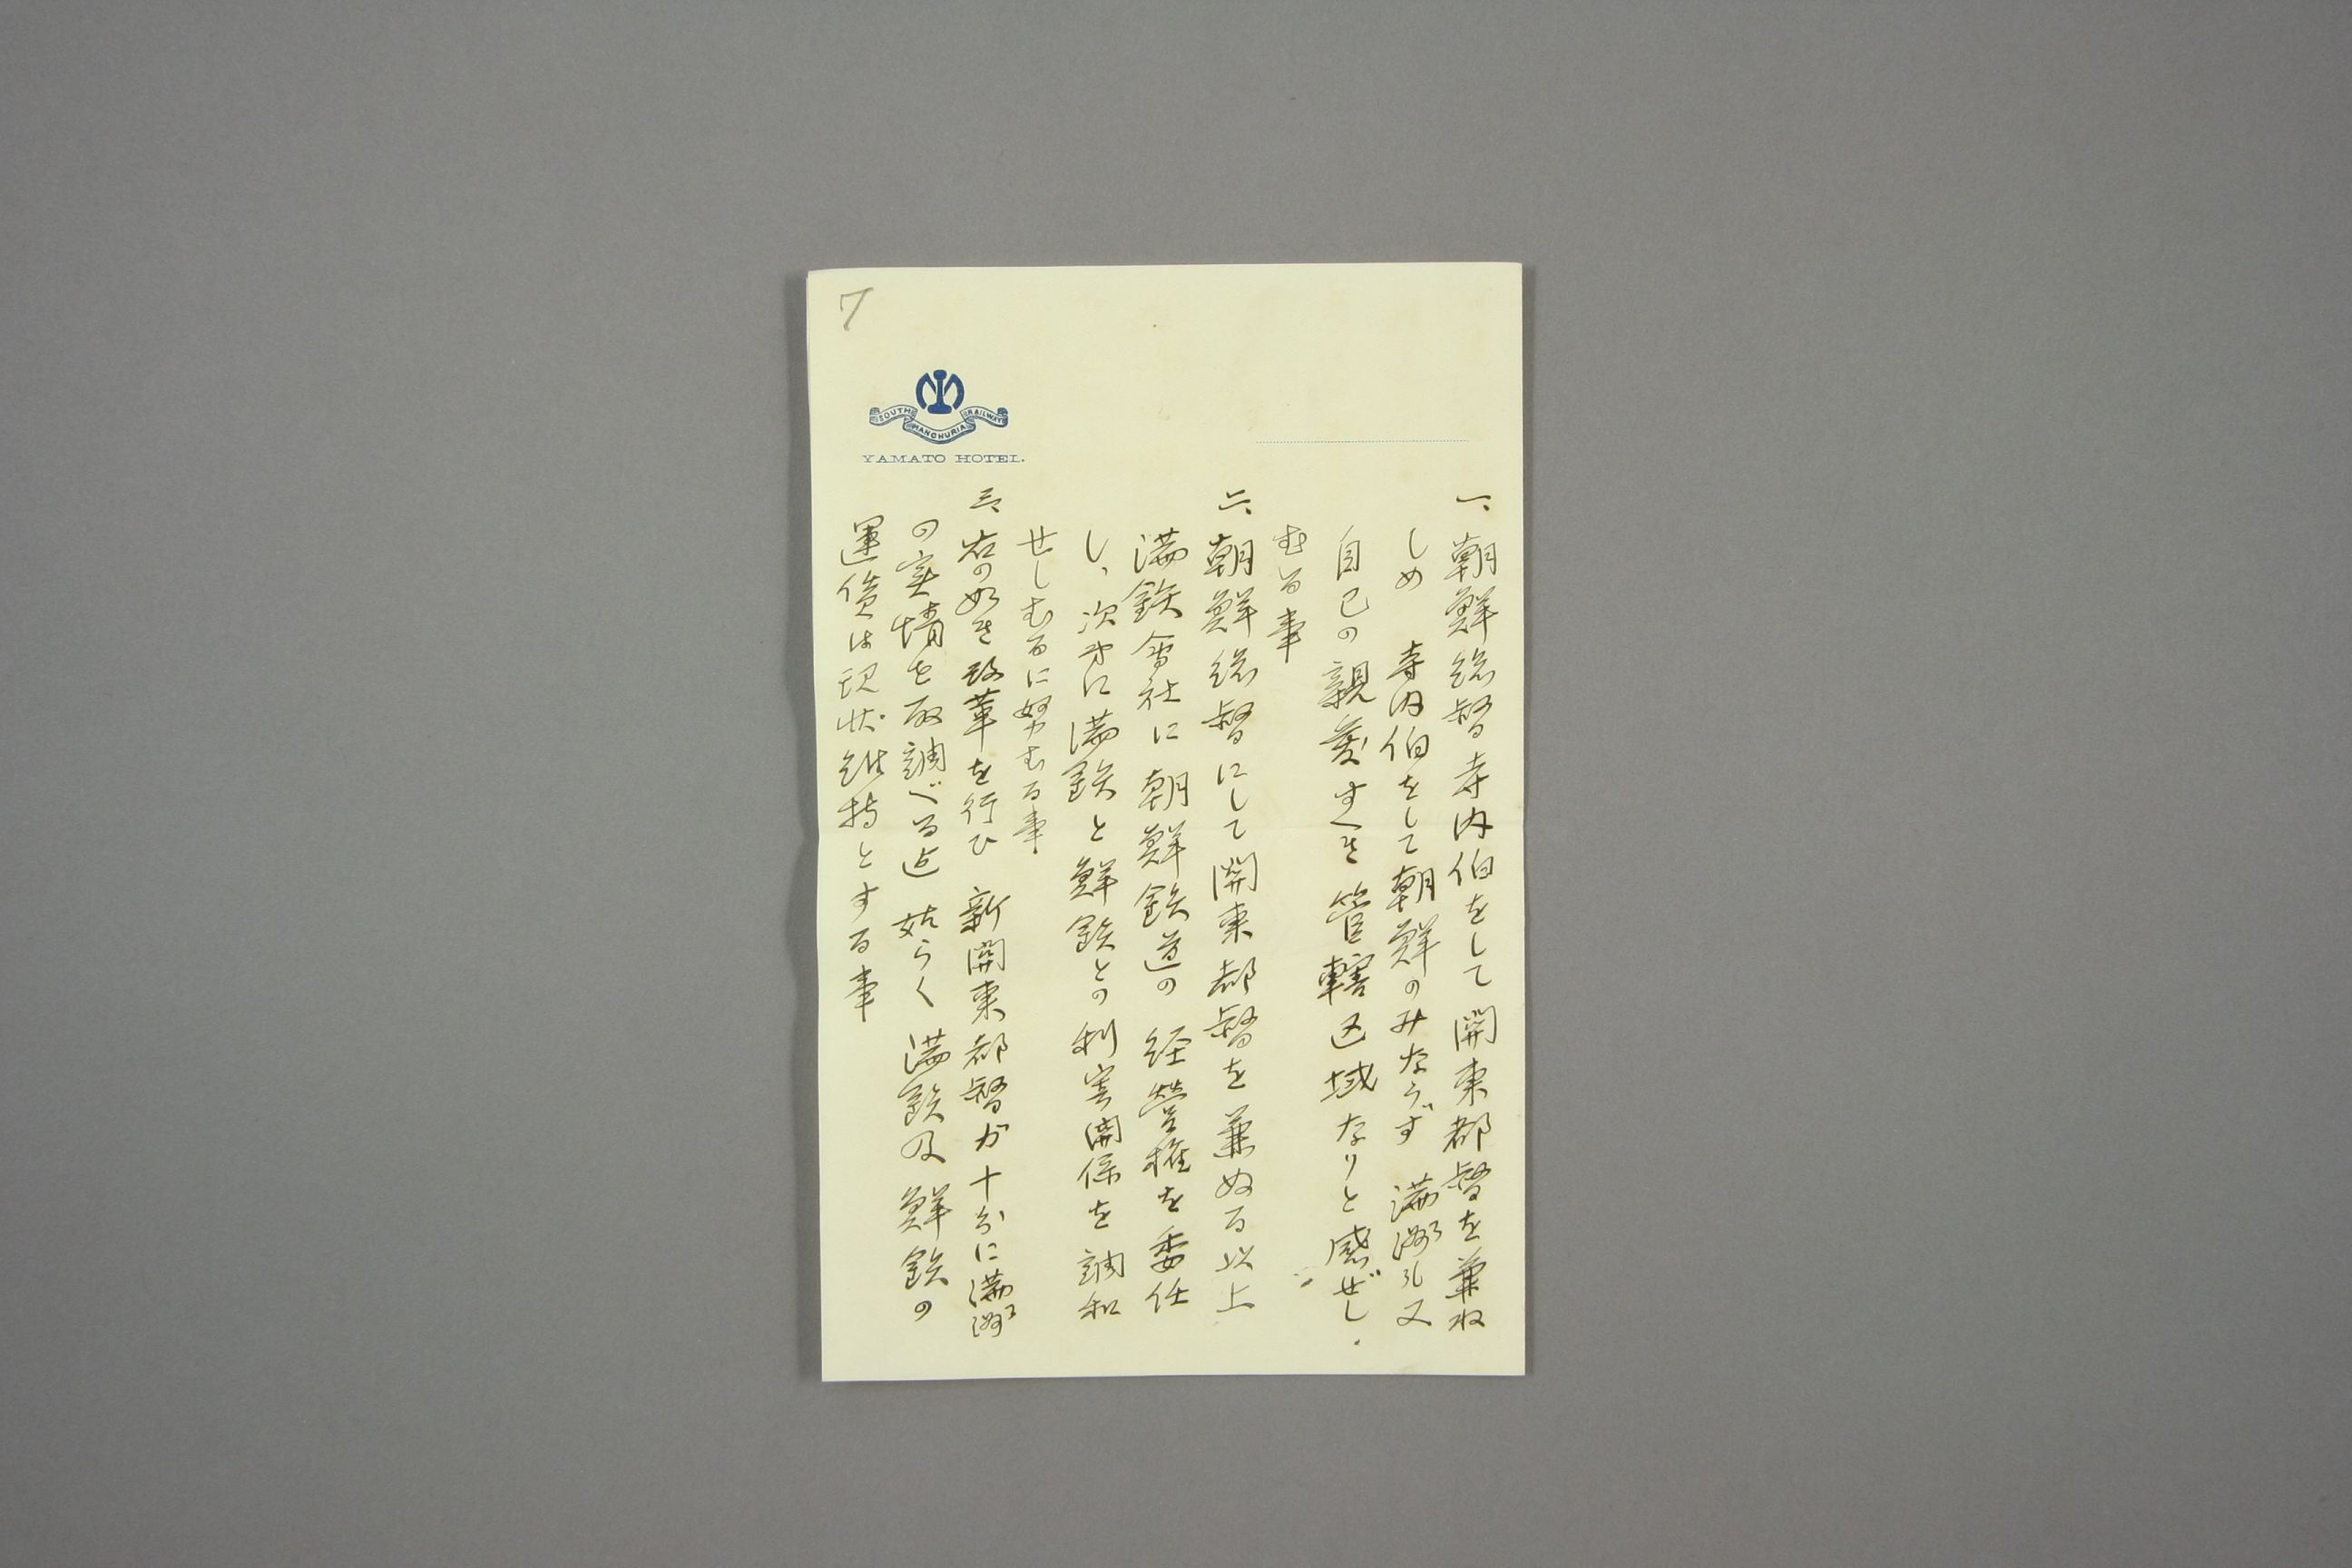 7
SOUTH MANCHURIA RAILWAY
YAMATO HOTEL.
一、朝鮮総督寺内伯をして関東都督を兼ね
しめ 寺内伯をして朝鮮のみならず 満洲も又
自己の親愛すべき管轄区域なりと感ぜし
むる事
二、朝鮮総督にして関東都督を兼ぬる以上
満鉄会社に朝鮮鉄道の経営権を委任
し、次に満鉄と鮮鉄との利害関係を調和
せしむるに努むる事
三、右の如き改革を行ひ 新関東都督が十分に満洲
の実情を取調べる迄 姑らく 満鉄及鮮鉄の
運賃は現状維持とする事